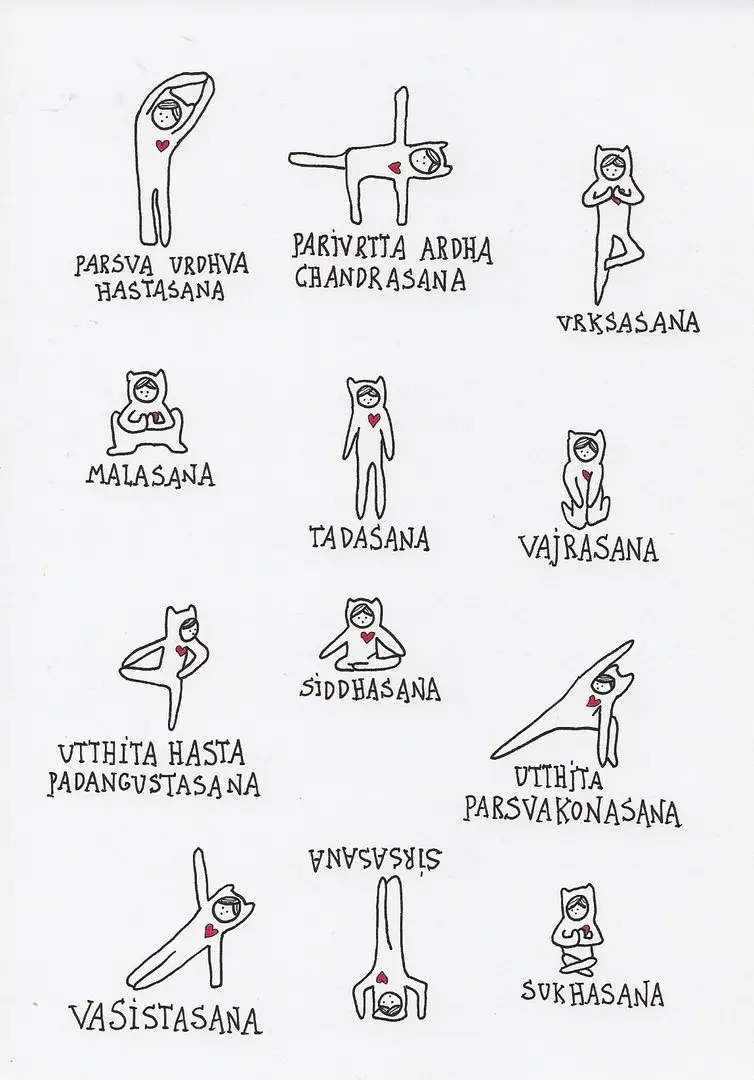 PARSVA URDHVA
HASTASANA
PARIVRTTA ARDHA
CHANDRASANA
VRKSASANA
MALASANA
TADASANA
VAJRASANA
UTTHITA HASTA
PADANGUSTASANA
SIDDHASANA
UTTHITA
PARSVAKONASANA
VASISTASANA
SIRSASANA
SUKHASANA